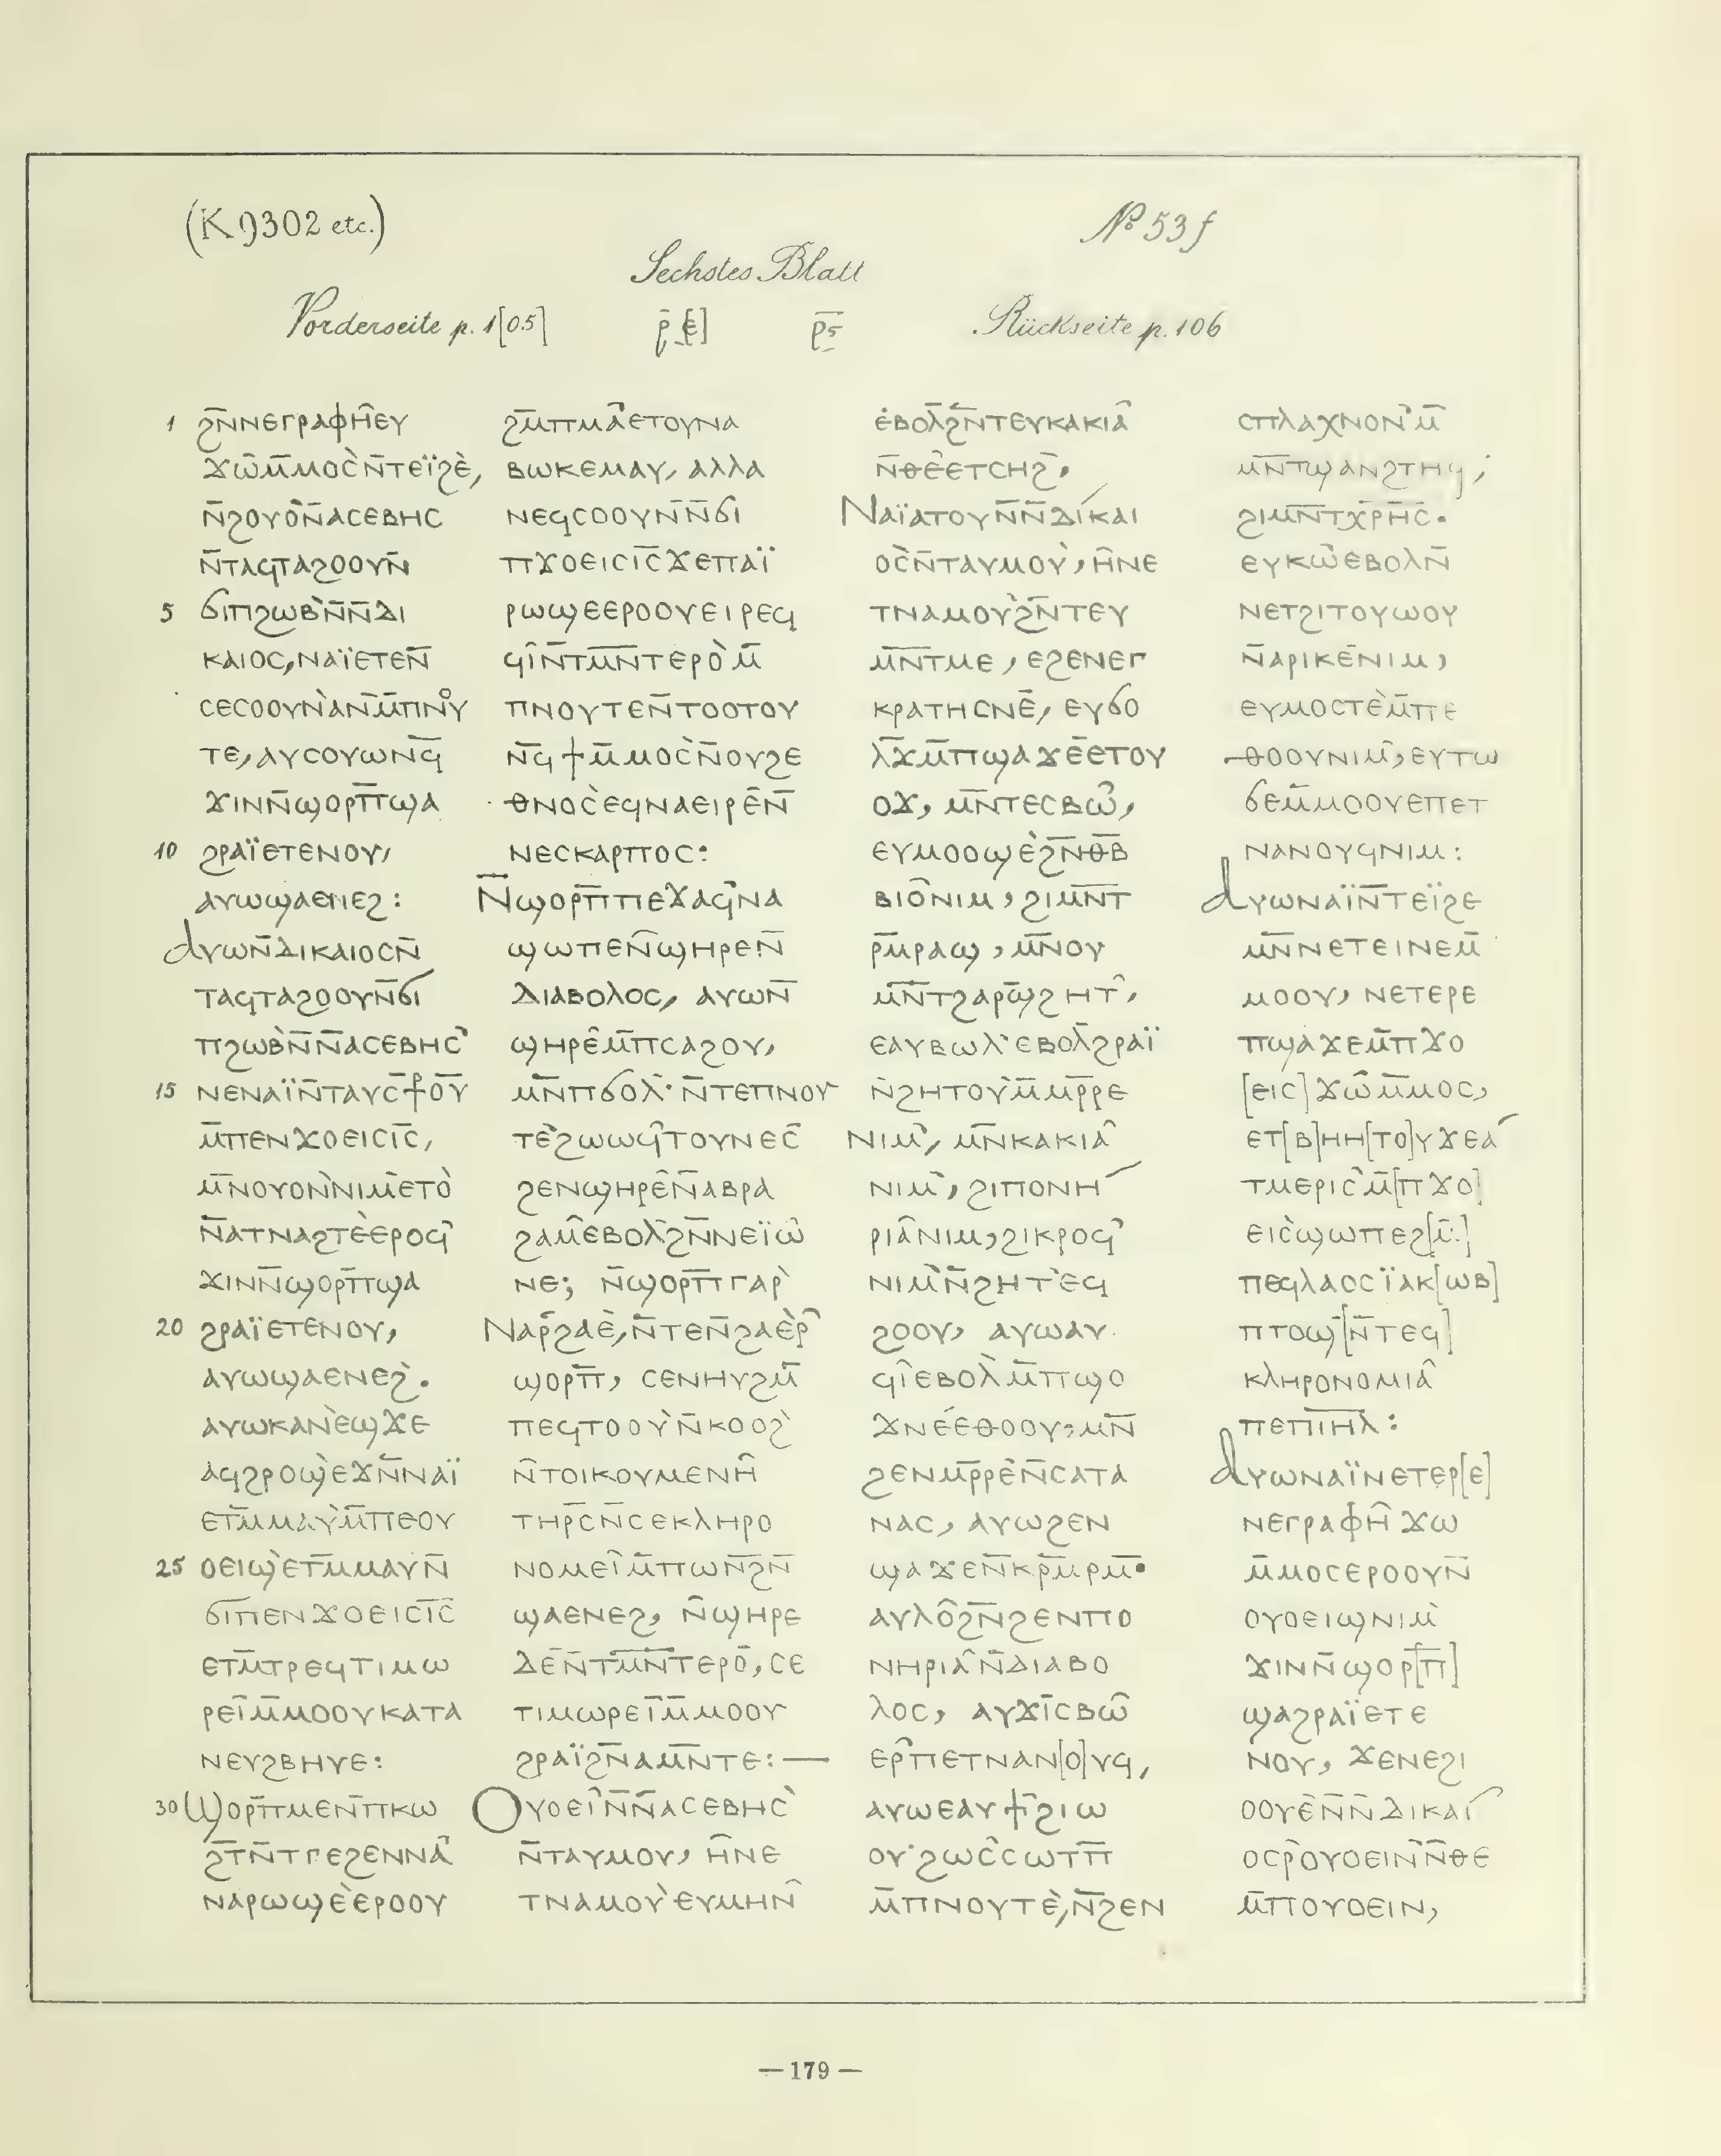 (K 9302 etc.)
№ 53 f
Sechstes Blatt
Vorderseite p. 1[05]
ⲣ̄[ⲉ̄]
ⲣ̄ⲋ̄
Rückseite p. 106
1 ϩⲛ̄ⲛⲉⲅⲣⲁⲫⲏ̂ⲉⲩ
ϫⲱ̂ⲙ̄ⲙⲟⲥ̀ⲛ̄ⲧⲉⲓ̈ϩⲉ̀,
ⲛ̄ϩⲟⲩⲟ̂ⲛ̄ⲁⲥⲉⲃⲏⲥ
ⲛ̄ⲧⲁϥⲧⲁϩⲟⲟⲩⲛ̄
5 ϭⲓⲡϩⲱⲃ̀ⲛ̄ⲛ̄ⲇⲓ
ⲕⲁⲓⲟⲥ,ⲛⲁⲓ̈ⲉⲧⲉⲛ̄
ⲥⲉⲥⲟⲟⲩⲛ̀ⲁⲛ̄ⲙ̄ⲡⲛⲟⲩ
ⲧⲉ,ⲁⲩⲥⲟⲩⲱⲛϥ̄
ϫⲓⲛⲛ̄ϣⲟⲣⲡ̄ϣⲁ
10 ϩⲣⲁⲓ̈ⲉⲧⲉⲛⲟⲩ,
ⲁⲩⲱϣⲁⲉⲛⲉϩ:
ⲁⲩⲱⲛ̄ⲇⲓⲕⲁⲓⲟⲥⲛ̄
ⲧⲁϥⲧⲁϩⲟⲟⲩⲛ̄ϭⲓ
ⲡϩⲱⲃ̀ⲛ̄ⲛ̄ⲁⲥⲉⲃⲏⲥ̀
15 ⲛⲉⲛⲁⲓ̈ⲛ̄ⲧⲁⲩⲥ̄ⳁⲟ̄ⲩ̄
ⲙ̄ⲡⲉⲛϫⲟⲉⲓⲥⲓ̅ⲥ̅,
ⲙ̄ⲛⲟⲩⲟⲛ̀ⲛⲓⲙ̀ⲉⲧⲟ̀
ⲛ̄ⲁⲧⲛⲁϩⲧⲉ̀ⲉⲣⲟϥ̂
ϫⲓⲛⲛ̄ϣⲟⲣⲡ̄ϣⲁ
20 ϩⲣⲁⲓ̈ⲉⲧⲉⲛⲟⲩ,
ⲁⲩⲱϣⲁⲉⲛⲉϩ̀.
ⲁⲩⲱⲕⲁⲛ̀ⲉϣϫⲉ
ⲁϥϩⲣⲟϣ̀ⲉϫⲛ̄ⲛⲁⲓ̈
ⲉⲧⲙ̄ⲙⲁⲩ̀ⲙ̄ⲡⲉⲟⲩ
25 ⲟⲉⲓϣ̀ⲉⲧⲙ̄ⲙⲁⲩⲛ̄
ϭⲓⲡⲉⲛϫⲟⲉⲓⲥⲓ̅ⲥ̅
ⲉⲧⲙ̄ⲧⲣⲉϥⲧⲓⲙⲱ
ⲣⲉⲓ̂ⲙ̄ⲙⲟⲟⲩⲕⲁⲧⲁ
ⲛⲉⲩϩⲃⲏⲩⲉ:
30 ϣⲟⲣⲡ̄ⲙⲉⲛ̄ⲡⲕⲱ
ϩⲧ̄ⲛ̄ⲧⲅⲉϩⲉⲛⲛⲁ̂
ⲛⲁⲣⲱϣⲉ̀ⲉⲣⲟⲟⲩ
ϩⲙ̄ⲡⲙⲁ̂ⲉⲧⲟⲩⲛⲁ
ⲃⲱⲕⲉⲙⲁⲩ, ⲁⲗⲗⲁ
ⲛⲉϥⲥⲟⲟⲩⲛ̄ⲛ̄ϭⲓ
ⲡϫⲟⲉⲓⲥⲓ̅ⲥ̅ϫⲉⲡⲁⲓ̈
ⲣⲱϣⲉⲉⲣⲟⲟⲩⲉⲓⲣⲉϥ
ϥⲓ̂ⲛ̄ⲧⲙ̄ⲛ̄ⲧⲉⲣⲟ̀ⲙ̄
ⲡⲛⲟⲩⲧⲉⲛ̄ⲧⲟⲟⲧⲟⲩ
ⲛ̄ϥϯⲙ̄ⲙⲟⲥ̀ⲛ̄ⲟⲩϩⲉ
ⲑⲛⲟⲥ̀ⲉϥⲛⲁⲉⲓⲣⲉ̄ⲛ̄
ⲛⲉⲥⲕⲁⲣⲡⲟⲥ:
ⲛ̄ϣⲟⲣⲡ̄ⲡⲉϫⲁϥ̂ⲛⲁ
ϣⲱⲡⲉⲛ̄ϣⲏⲣⲉⲛ̄
ⲇⲓⲁⲃⲟⲗⲟⲥ, ⲁⲩⲱⲛ̄
ϣⲏⲣⲉ̂ⲙ̄ⲡⲥⲁϩⲟⲩ,
ⲙ̄ⲛⲡϭⲟⲗ̀ⲛ̄ⲧⲉⲡⲛⲟⲩ
ⲧⲉ̀ϩⲱⲱϥ̂ⲧⲟⲩⲛⲉⲥ̄
ϩⲉⲛϣⲏⲣⲉ̂ⲛ̄ⲁⲃⲣⲁ
ϩⲁⲙ̂ⲉⲃⲟⲗ̀ϩⲛ̄ⲛⲉⲓ̈ⲱ̂
ⲛⲉ; ⲛ̄ϣⲟⲣⲡ̄ⲅⲁⲣ̀
ⲛⲁⲣ̄ϩⲁⲉ̀,ⲛ̄ⲧⲉⲛ̄ϩⲁⲉ̀ⲣ̄
ϣⲟⲣⲡ̄, ⲥⲉⲛⲏⲩϩⲙ̄
ⲡⲉϥⲧⲟⲟⲩ̀ⲛ̄ⲕⲟⲟϩ̀
ⲛ̄ⲧⲟⲓⲕⲟⲩⲙⲉⲛⲏ̂
ⲧⲏⲣⲥ̄ⲛ̄ⲥⲉⲕⲗⲏⲣⲟ
ⲛⲟⲙⲉⲓ̂ⲙ̄ⲡⲱⲛ̄ϩⲛ̄
ϣⲁⲉⲛⲉϩ, ⲛ̄ϣⲏⲣⲉ
ⲇⲉ̄ⲛ̄ⲧⲙ̄ⲛ̄ⲧⲉⲣⲟ̄,ⲥⲉ
ⲧⲓⲙⲱⲣⲉⲓ̂ⲙ̄ⲙⲟⲟⲩ
ϩⲣⲁⲓ̈ϩⲛ̄ⲁⲙ̄ⲛⲧⲉ:—
ⲟⲩⲟⲉⲓ̂ⲛ̄ⲛ̄ⲁⲥⲉⲃⲏⲥ̀
ⲛ̄ⲧⲁⲩⲙⲟⲩ, ⲏ̂ⲛⲉ
ⲧⲛⲁⲙⲟⲩ̀ⲉⲩⲙⲏⲛ̂
ⲉ̇ⲃⲟⲗ̀ϩⲛ̄ⲧⲉⲩⲕⲁⲕⲓⲁ̂
ⲛ̄ⲑⲉ̂ⲉⲧⲥⲏϩ̀.
ⲛⲁⲓ̈ⲁⲧⲟⲩⲛ̄ⲛ̄ⲇⲓⲕⲁⲓ
ⲟⲥ̀ⲛ̄ⲧⲁⲩⲙⲟⲩ̀,ⲏ̂ⲛⲉ
ⲧⲛⲁⲙⲟⲩ̀ϩⲛ̄ⲧⲉⲩ
ⲙ̄ⲛ̄ⲧⲙⲉ, ⲉϩⲉⲛⲉⲅ
ⲕⲣⲁⲧⲏⲥⲛⲉ̄, ⲉⲩϭⲟ
ⲗϫ̄ⲙ̄ⲡϣⲁϫⲉ̄ⲉⲧⲟⲩ
ⲟϫ, ⲙ̄ⲛⲧⲉⲥⲃⲱ̂,
ⲉⲩⲙⲟⲟϣⲉ̀ϩⲛ̄ⲑ̄ⲃ̄
ⲃⲓⲟ̂ⲛⲓⲙ, ϩⲓⲙ̄ⲛ̄ⲧ
ⲣⲙ̄ⲣⲁϣ, ⲙ̄ⲛⲟⲩ
ⲙ̄ⲛ̄ⲧϩⲁⲣϣ̄ϩⲏⲧ̂,
ⲉⲁⲩⲃⲱⲗ̀ⲉⲃⲟⲗ̀ϩⲣⲁⲓ̈
ⲛ̀ϩⲏⲧⲟⲩ̀ⲙ̄ⲙⲣ̄ⲣⲉ
ⲛⲓⲙ̀, ⲙ̄ⲛⲕⲁⲕⲓⲁ̂
ⲛⲓⲙ̀, ϩⲓⲡⲟⲛⲏ
ⲣⲓⲁ̂ⲛⲓⲙ,ϩⲓⲕⲣⲟϥ̂
ⲛⲓⲙ̀ⲛ̄ϩⲏⲧ̀ⲉϥ
ϩⲟⲟⲩ, ⲁⲩⲱⲁⲩ
ϥⲓ̂ⲉⲃⲟⲗ̀ⲙ̄ⲡϣⲟ
ϫⲛⲉ̀ⲉⲑⲟⲟⲩ,ⲙⲛ̄
ϩⲉⲛⲙⲣ̄ⲣⲉ̀ⲛ̄ⲥⲁⲧⲁ
ⲛⲁⲥ, ⲁⲩⲱϩⲉⲛ
ϣⲁϫⲉⲛ̄ⲕⲣⲙ̄ⲣⲙ̄.
ⲁⲩⲗⲟ̂ϩⲛ̄ϩⲉⲛⲡⲟ
ⲛⲏⲣⲓⲁ̂ⲛ̄ⲇⲓⲁⲃⲟ
ⲗⲟⲥ, ⲁⲩϫⲓ̄ⲥⲃⲱ̂
ⲉⲣ̄ⲡⲉⲧⲛⲁⲛ[ⲟ]ⲩϥ,
ⲁⲩⲱⲉⲁⲩϯ̂ϩⲓⲱ
ⲟⲩ̀ϩⲱⲥ̂ⲥⲱⲧⲡ̄
ⲙ̄ⲡⲛⲟⲩⲧⲉ̀,ⲛ̄ϩⲉⲛ
ⲥⲡⲗⲁⲭⲛⲟⲛ̀ⲙ̄
ⲙ̄ⲛ̄ⲧϣⲁⲛϩⲧⲏϥ;
ϩⲓⲙ̄ⲛ̄ⲧⲭⲣ̄ⲏ̄ⲥ̄.
ⲉⲩⲕⲱ̂ⲉⲃⲟⲗⲛ̄
ⲛⲉⲧϩⲓⲧⲟⲩⲱⲟⲩ
ⲛ̄ⲁⲣⲓⲕⲉ̄ⲛⲓⲙ,
ⲉⲩⲙⲟⲥⲧⲉ̀ⲙ̄ⲡⲉ
ⲑⲟⲟⲩⲛⲓⲙ̂,ⲉⲩⲧⲱ
ϭⲉⲙ̄ⲙⲟⲟⲩⲉⲡⲉⲧ
ⲛⲁⲛⲟⲩϥⲛⲓⲙ:
ⲁⲩⲱⲛⲁⲓ̈ⲛ̄ⲧⲉⲓ̈ϩⲉ
ⲙ̄ⲛⲛⲉⲧⲉⲓⲛⲉⲙ̄
ⲙⲟⲟⲩ, ⲛⲉⲧⲉⲣⲉ
ⲡϣⲁϫⲉⲙ̄ⲡϫⲟ
[ⲉⲓⲥ]ϫⲱ̂ⲙ̄ⲙⲟⲥ,
ⲉⲧ[ⲃ]ⲏⲏ[ⲧⲟ]ⲩϫⲉⲁ
ⲧⲙⲉⲣⲓⲥ̂ⲙ̄[ⲡϫⲟ]
ⲉⲓⲥ̀ϣⲱⲡⲉϩ[ⲙ̄]
ⲡⲉϥⲗⲁⲟⲥⲓ̈ⲁⲕ[ⲱⲃ]
ⲡⲧⲟϣ[ⲛ̄ⲧⲉϥ]
ⲕⲗⲏⲣⲟⲛⲟⲙⲓⲁ̂
ⲡⲉⲡⲓ̅ⲏ̅ⲗ̅:
ⲁⲩⲱⲛⲁⲓ̈ⲛⲉⲧⲉⲣ[ⲉ]
ⲛⲉⲅⲣⲁⲫⲏ̂ϫⲱ
ⲙ̄ⲙⲟⲥⲉⲣⲟⲟⲩⲛ̄
ⲟⲩⲟⲉⲓϣⲛⲓⲙ̀
ϫⲓⲛⲛ̄ϣⲟⲣ[ⲡ̄]
ϣⲁϩⲣⲁⲓ̈ⲉⲧⲉ
ⲛⲟⲩ, ϫⲉⲛⲉϩⲓ
ⲟⲟⲩⲉ̀ⲛ̄ⲛ̄ⲇⲓⲕⲁⲓ
ⲟⲥⲣ̀ⲟⲩⲟⲉⲓⲛ̀ⲛ̄ⲑⲉ
ⲙ̄ⲡⲟⲩⲟⲉⲓⲛ,
— 179 —